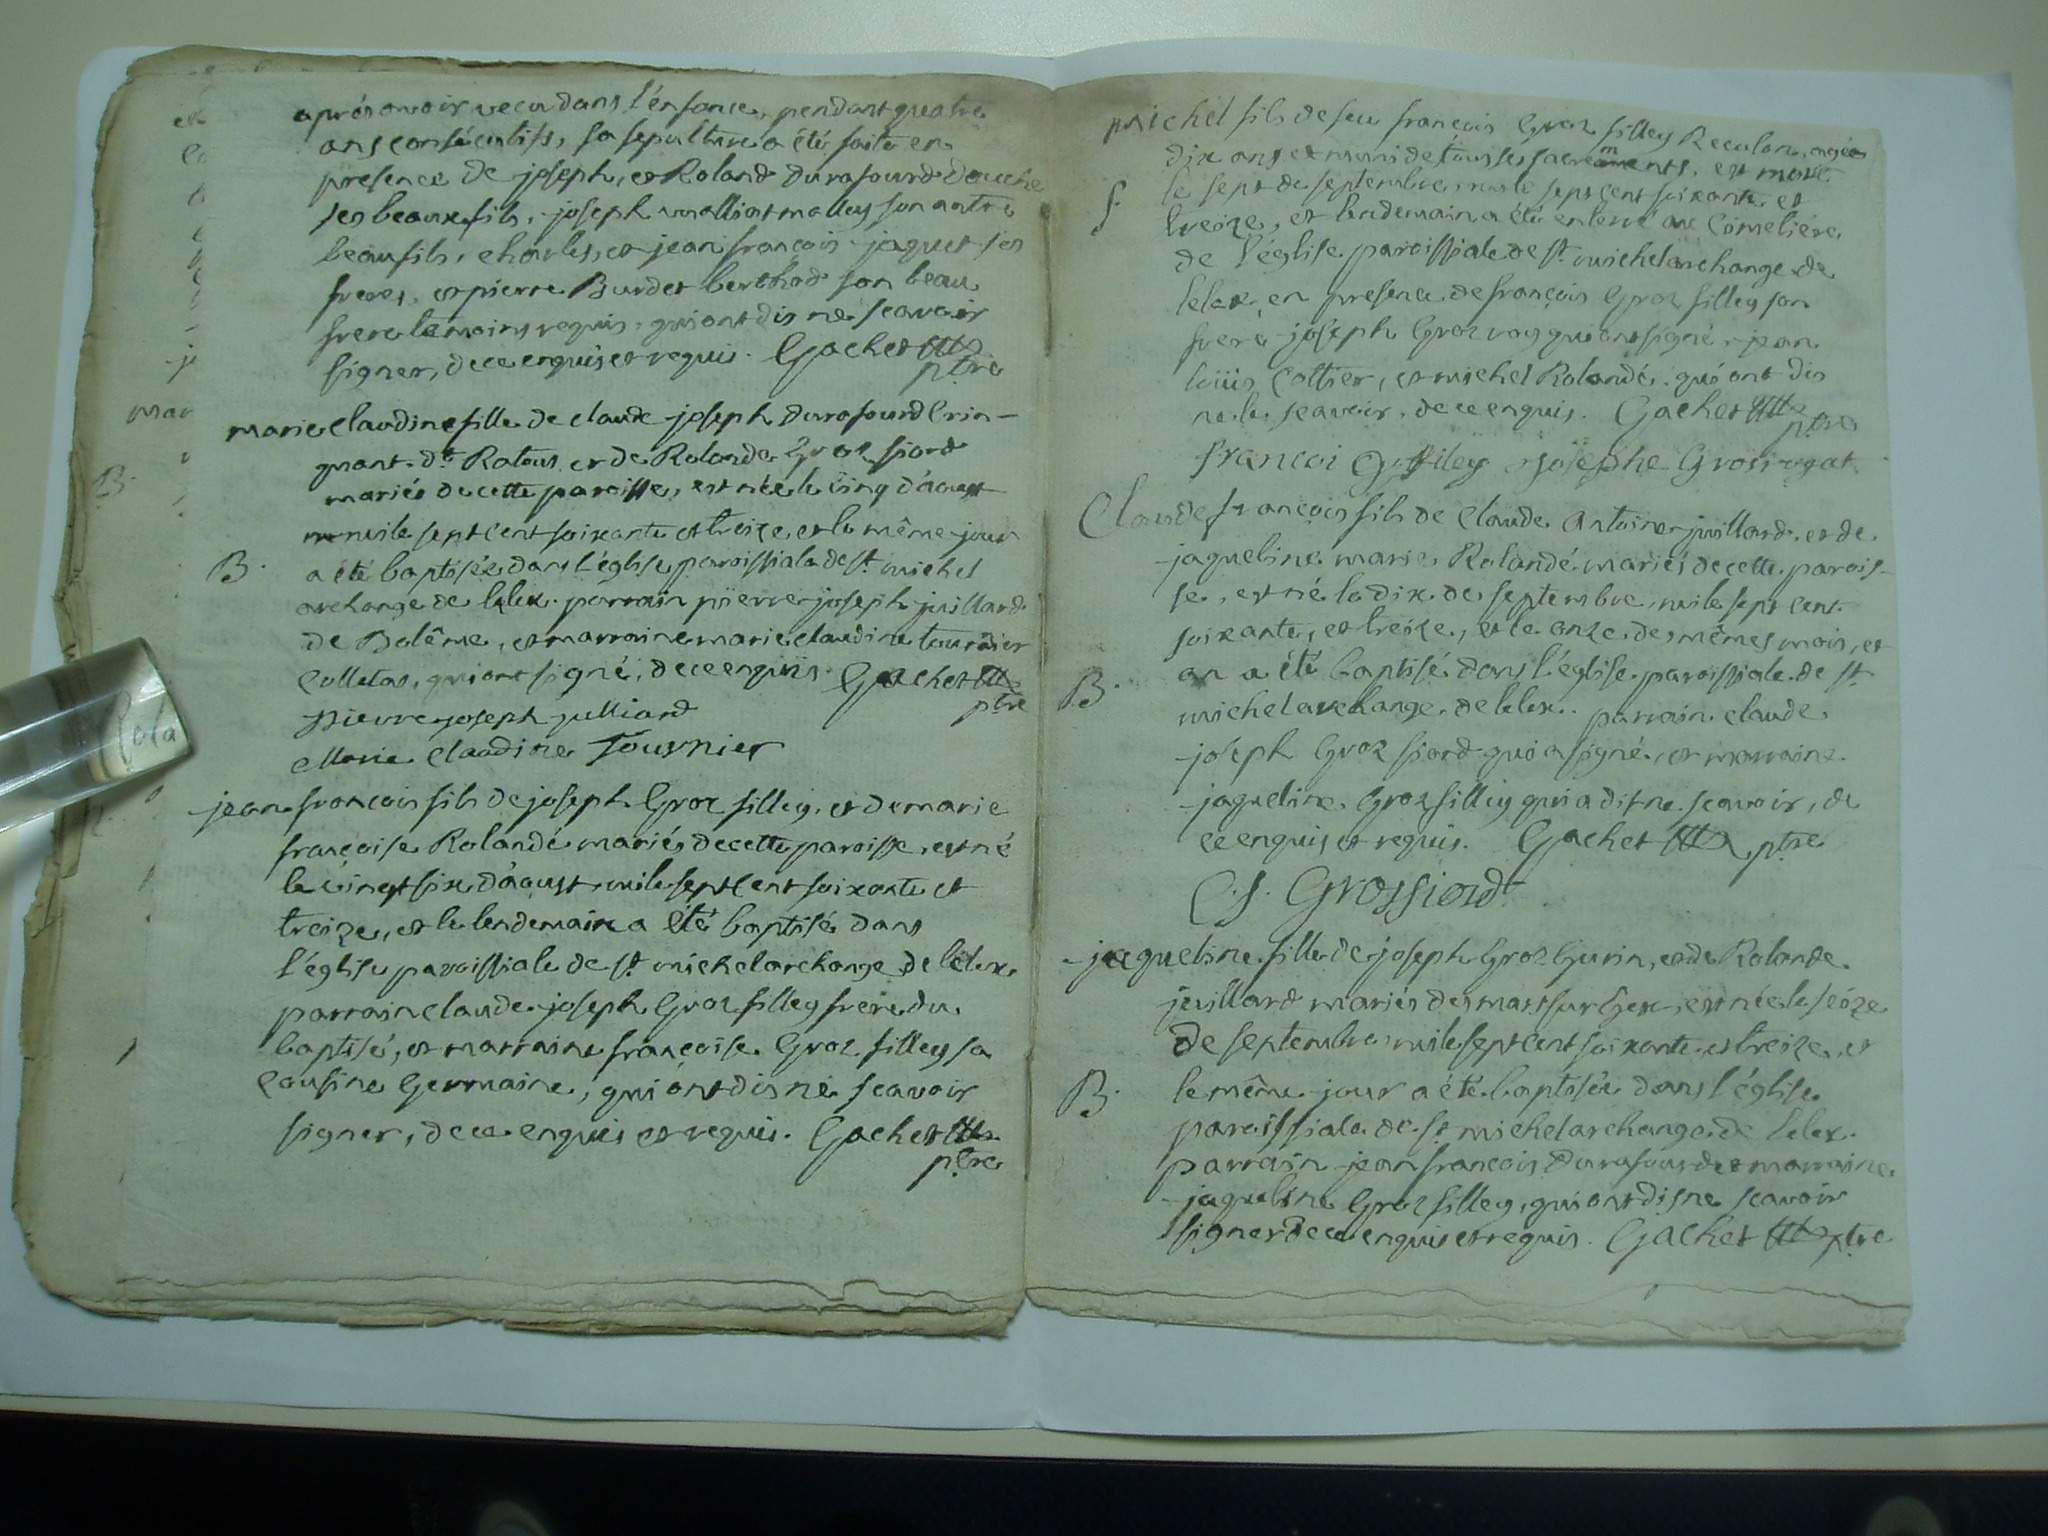 après avoir vecu dans l'enfance, pendant quatre
ans consécutifs, sa sepulture a été faite en
presence de joseph, et Roland durafourd douche
ses beaux fils, joseph malley son autre
beau fils, charles, et jean françois jaquet ses
freres, et pierre Burdet berthod son beau
frere temoins requis, qui ont dis ne scavoir
signer, de ce enquis et requis. Gachet
ptre
marie claudine fille de claude joseph durafourd brin-
quant dt Ratous, et de Rolande Groz siord
mariés de cette paroisse, est née le cinq d'aoust
mile sept cent soixante et treize, et le même jour
B. a été baptisée dans l'église paroissiale de st michel
archange de lelex. parrain pierre joseph juillard
de Bolême, et marraine marie claudine tournier
Colletas, qui ont signé, de ce enquis. Gachet
ptre
pierre joseph julliard
Marie Claudine Tournier
jean françois fils de joseph Groz filley, et de marie
françoise Rolandé mariés de cette paroisse, est né
le vingt six d'aoust mile sept cent soixante et
treize, et le lendemain a été baptisé dans
l'église paroissiale de st michel archange de lélex.
parrain claude joseph Groz filley frere du
baptisé, et marraine françoise Groz filley sa
cousine Germaine, qui ont dis ne scavoir
signer, de ce enquis et requis. Gachet
ptre
michel fils de feu françois Groz filley Reculan, agée
dix ans et muni de tous ses sacrements, est mort
f. le sept de septembre mile sept cent soixante et
treize, et lendemain a été enterré au cimetiére
de l'église paroissiale de st michel archange de
lelex, en presence de françois Groz filley son
frere joseph Groz rog qui ont signé, jean
loüis Cottier, et michel Rolandé qui ont dis
ne le scavoir, de ce enquis. Gachet
ptre
francoi G filley josephe Grosrogat
Claude françois fils de claude antoine juillard, et de
jaqueline marie Rolandé mariés de cette parois-
se, est né le dix de septembre mile sept cent
soixante, et treize, et le onze des mêmes mois, et
B. an a été baptisé dans l'église paroissiale de st
michel archange de lelex. parrain claude
joseph Groz siord qui a signé, et marraine
jaqueline Groz filley qui a dis ne scavoir, de
ce enquis et requis. Gachet ptre
C. J. Grossiord
jaqueline fille de joseph Groz Gurin, et de Rolande
juillard mariés des mars sur Gex, est née le seize
de septembre mile sept cent soixante et treize, et
B. le même jour a été baptisée dans l'église
paroissiale de st michel archange de lelex.
parrain jean françois durafourd et marraine
jaqueline Groz filley, qui ont dis ne scavoir
signer de ce enquis et requis. Gachet ptre
B.
mar